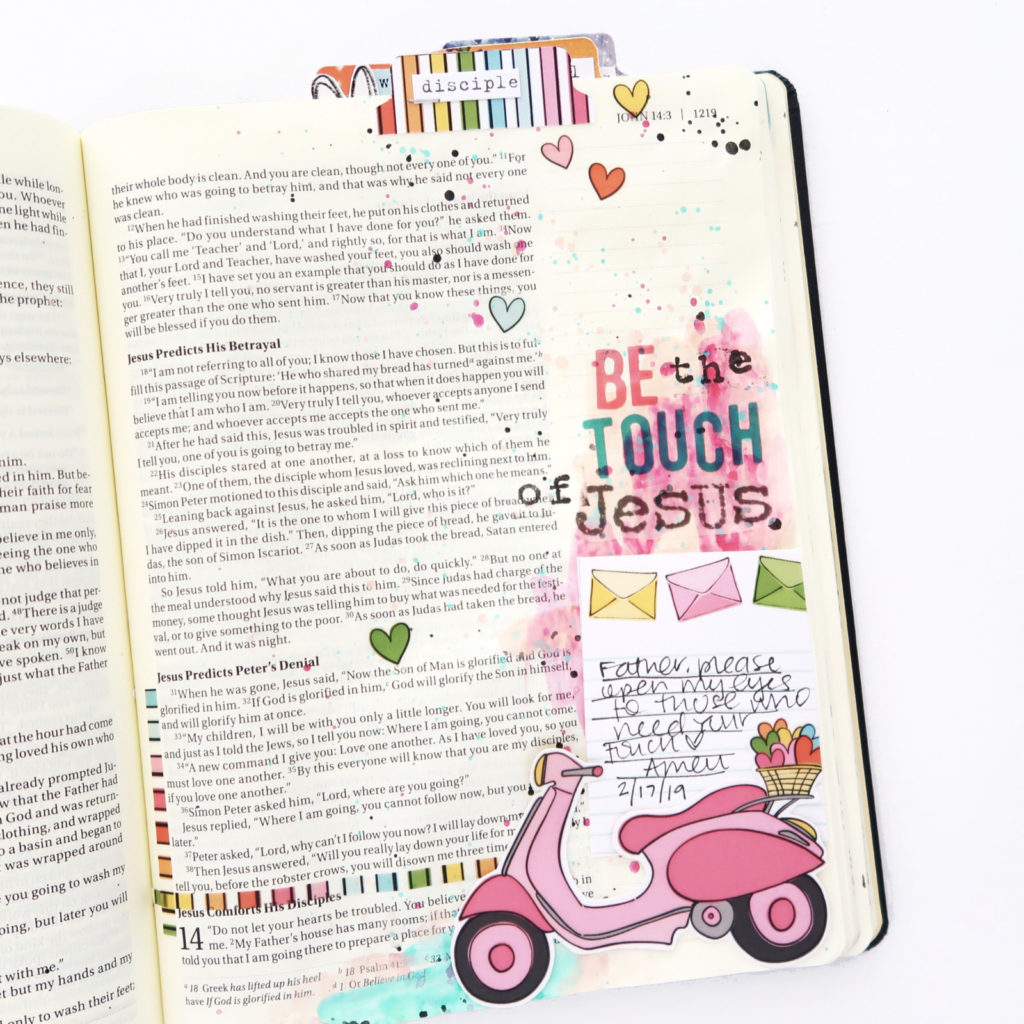 le while lon-
ou. Whoever
ne light while
en he had fin-
ence, they still
the prophet:
ys elsewhere:
him.
ed in him. But be-
heir faith for fear
man praise more
believe in me only,
eeing the one who
who believes in
not judge that per-
d. 48"There is a judge
e very words I have
eak on my own, but
ve spoken. 50I know
just what the Father
at the hour had come
ng loved his own who
already prompted Ju-
w that the Father had
God and was return-
clothing, and wrapped
o a basin and began to
t was wrapped around
e you going to wash my
oing, but later you will
t with me."
et but my hands and my
only to wash their feet;
disciple
JOHN 14:3 | 1219
their whole body is clean. And you are clean, though not every one of you." 11For
he knew who was going to betray him, and that was why he said not every one
was clean.
12When he had finished washing their feet, he put on his clothes and returned
to his place. "Do you understand what I have done for you?" he asked them.
13"You call me 'Teacher' and 'Lord,' and rightly so, for that is what I am. 14Now
that I, your Lord and Teacher, have washed your feet, you also should wash one
another's feet. 15I have set you an example that you should do as I have done for
you. 16Very truly I tell you, no servant is greater than his master, nor is a messen-
ger greater than the one who sent him. 17Now that you know these things, you
will be blessed if you do them.
Jesus Predicts His Betrayal
18"I am not referring to all of you; I know those I have chosen. But this is to ful-
fill this passage of Scripture: 'He who shared my bread has turneda against me.'b
19"I am telling you now before it happens, so that when it does happen you will
believe that I am who I am. 20Very truly I tell you, whoever accepts anyone I send
accepts me; and whoever accepts me accepts the one who sent me."
21After he had said this, Jesus was troubled in spirit and testified, "Very truly
I tell you, one of you is going to betray me."
22His disciples stared at one another, at a loss to know which of them he
meant. 23One of them, the disciple whom Jesus loved, was reclining next to him.
24Simon Peter motioned to this disciple and said, "Ask him which one he means."
25Leaning back against Jesus, he asked him, "Lord, who is it?"
26Jesus answered, "It is the one to whom I will give this piece of bread when
I have dipped it in the dish." Then, dipping the piece of bread, he gave it to Ju-
das, the son of Simon Iscariot. 27As soon as Judas took the bread, Satan entered
into him.
So Jesus told him, "What you are about to do, do quickly." 28But no one at
the meal understood why Jesus said this to him. 29Since Judas had charge of the
money, some thought Jesus was telling him to buy what was needed for the festi-
val, or to give something to the poor. 30As soon as Judas had taken the bread, he
went out. And it was night.
Jesus Predicts Peter's Denial
31When he was gone, Jesus said, "Now the Son of Man is glorified and God is
glorified in him. 32If God is glorified in him,c God will glorify the Son in himself,
and will glorify him at once.
33"My children, I will be with you only a little longer. You will look for me,
and just as I told the Jews, so I tell you now: Where I am going, you cannot come.
34"A new command I give you: Love one another. As I have loved you, so you
must love one another. 35By this everyone will know that you are my disciples,
if you love one another."
36Simon Peter asked him, "Lord, where are you going?"
Jesus replied, "Where I am going, you cannot follow now, but you
later."
37Peter asked, "Lord, why can't I follow you now? I will lay down m
38Then Jesus answered, "Will you really lay down your life for m
tell you, before the rooster crows, you will disown me three time
Jesus Comforts His Disciples
14 "Do not let your hearts be troubled. You believe
me. 2My Father's house has many rooms; if tha
told you that I am going there to prepare a place for y
a 18 Greek has lifted up his heel b 18 Psalm 41:
have If God is glorified in him. d 1 Or Believe in God
BE the
TOUCH
of Jesus.
Father, please
open my eyes
to those who
need your
touch
Amen
2/17/19